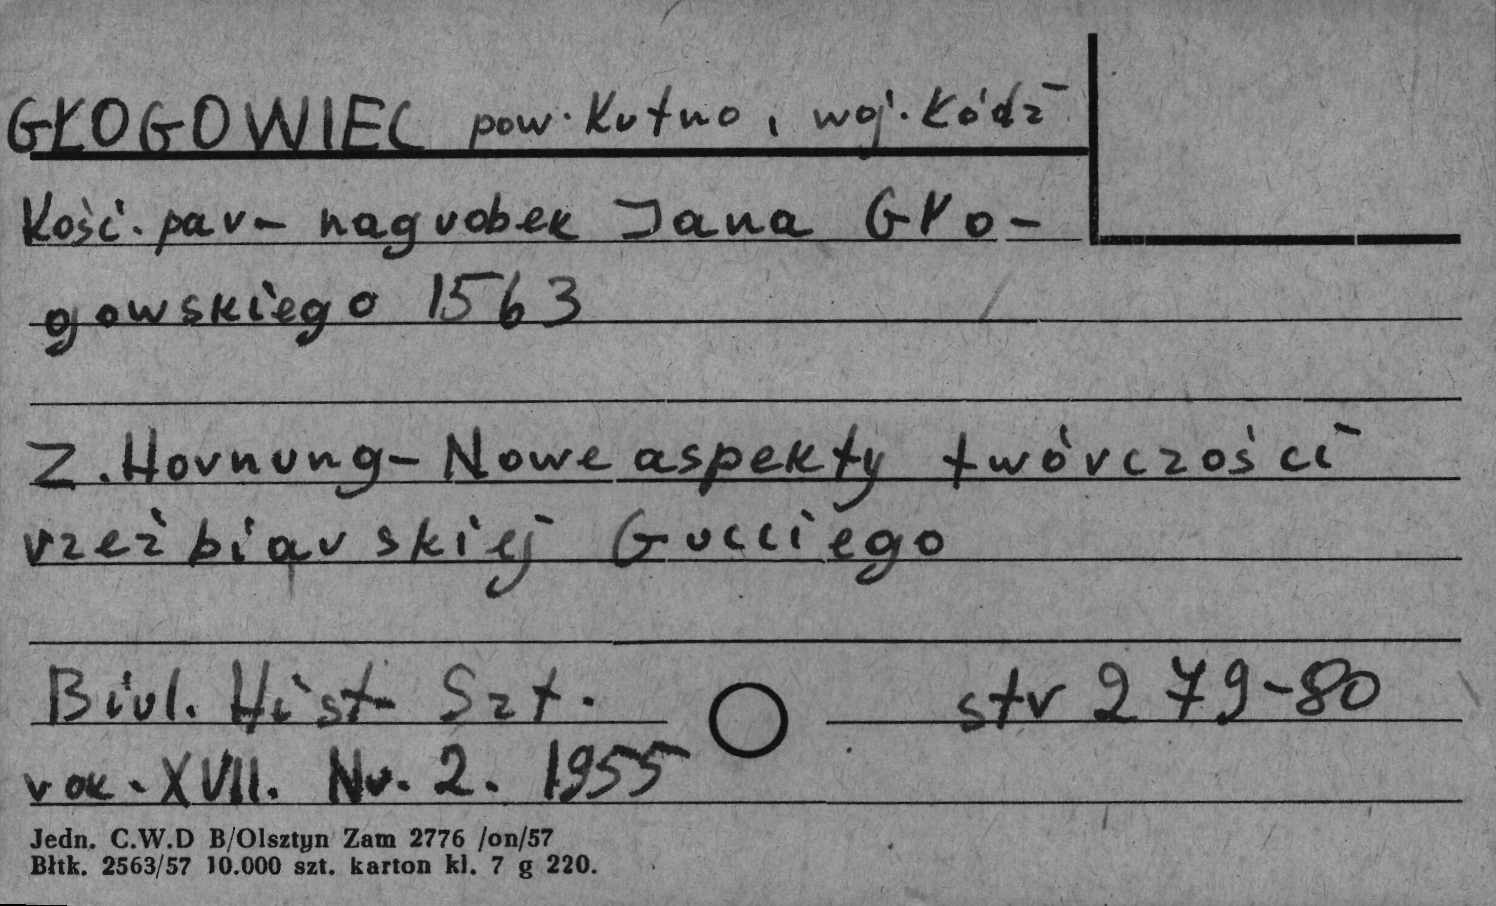 GŁOGOWIEC pow. Kutno, woj. Łódź
Kość. par – nagrobek Jana Gło-
gowskiego 1563
Z. Hornung – Nowe aspekty twórczości
rzeźbiarskiej Gucciego
Biul. Hist. Szt. str 279-80
rok. XVII. Nr. 2. 1955
Jedn. C.W.D B/Olsztyn Zam 2776 /on/57
Błtk. 2563/57 10.000 szt. karton kl. 7 g 220.